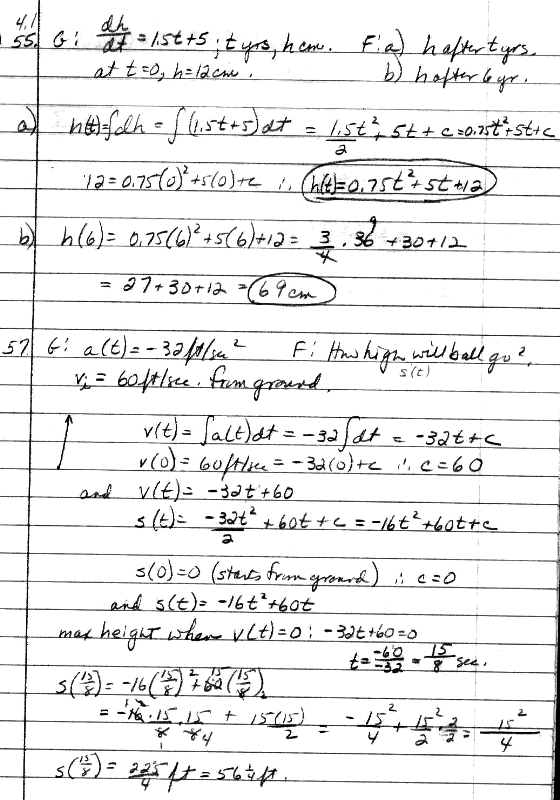 4.1
55. G: dh/dt = 1.5t+5 ; t yrs, h cm. F: a) h after t yrs.
at t=0, h=12cm. b) h after 6 yr.
a) h(t)=∫dh = ∫(1.5t+5)dt = 1.5t²/2 + 5t + c =0.75t²+5t+c
12=0.75(0)²+5(0)+c ∴ h(t)=0.75t²+5t+12
b) h(6)= 0.75(6)²+5(6)+12= 3/4 · 36 9 +30+12
= 27+30+12 = 69 cm
57. G: a(t)=-32ft/sec² F: How high will ball go?
s(t)
vᵢ = 60ft/sec. from ground.
v(t)= ∫a(t)dt = -32∫dt = -32t+c
v(0)= 60ft/sec = -32(0)+c ∴ c=60
and v(t)= -32t+60
s(t)= -32t²/2 + 60t + c = -16t²+60t+c
s(0)=0 (starts from ground) ∴ c=0
and s(t)= -16t²+60t
max height when v(t)=0: -32t+60=0
t= -60/-32 = 15/8 sec.
s(15/8)= -16(15/8)²+60(15/8)
= -16·15/8·15/8 4 + 15(15)/2 = -15²/4 + 15²/2·2/2 = 15²/4
s(15/8)= 225/4 ft = 56 1/4 ft.